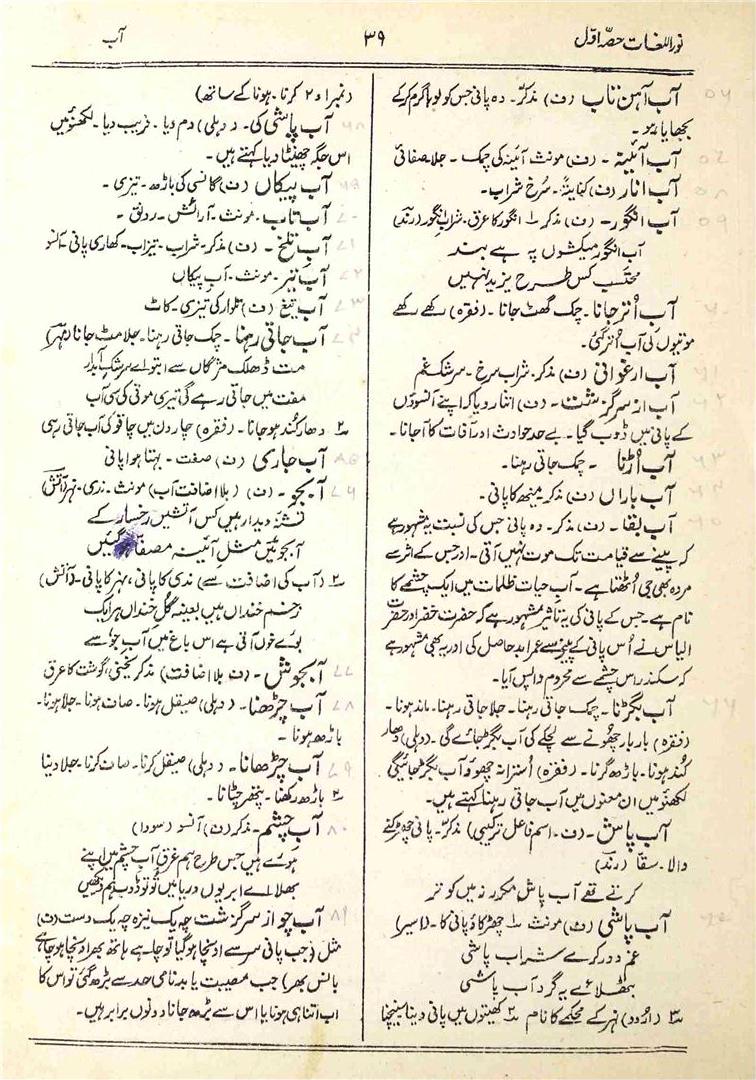 نور اللغات حصہ اوّل
۳۹
آب
آب آہن تاب (ف) مذکر۔ وہ پانی جس کو لوہا گرم کرکے
بجھایا ہو۔
آب آئینہ۔ (ف) مونث آئینہ کی چمک۔ جلا۔ صفائی
آب انار (ف) کنایتہً۔ سُرخ شراب۔
آب انگور۔ (ف) مذکر ۱ انگور کا عرق۔ شراب انگور (رند)
آب انگور میکشوں پہ ہے بند
محتسب کس طرح یزید نہیں
آب اُتر جانا۔ چمک گھٹ جانا۔ (فقرہ) رکھے رکھے
موتیوں کی آب اُتر گئی۔
آب ارغوانی (ف) مذکر۔ شراب سرخ۔ سرشک غم
آب از سر گزشت۔ (ف) اتنا رویا کہ اپنے آنسوؤں
کے پانی میں ڈوب گیا۔ بے حد حوادث اور آفات کا آجانا۔
آب اُڑنا۔ چمک جاتی رہنا۔
آب باراں (ف) مذکر۔ مینھ کا پانی۔
آب بقا۔ (ف) مذکر۔ وہ پانی جس کی نسبت یہ مشہور ہے
کہ پینے سے قیامت تک موت نہیں آتی۔ اور جس کے اثر سے
مردہ بھی جی اُٹھتا ہے۔ آب حیات ظلمات میں ایک چشمے کا
نام ہے۔ جس کے پانی کی یہ تاثیر مشہور ہے کہ حضرت خضر اور حضرت
الیاس نے اُس پانی کے پینے سے عمر ابد حاصل کی اور یہ بھی مشہور ہے
کہ سکندر اس چشمے سے محروم واپس آیا۔
آب بگڑنا۔ چمک جاتی رہنا۔ جلا جاتی رہنا۔ ماند ہونا۔
(فقرہ) بار بار چھونے سے لچکے کی آب بگڑ جائے گی۔ (دہلی) دھار
کُند ہونا۔ باڑھ گرنا۔ (فقرہ) اُسترا نہ چھوؤ آب بگڑ جائیگی
لکھنؤ میں ان معنوں میں آب جاتی رہنا کہتے ہیں۔
آب پاش۔ (ف۔ اسم فاعل ترکیبی) مذکر۔ پانی چھڑکنے
والا۔ سقا (رند)
کرتے تھے آب پاش مکرر زمیں کو تر
آب پاشی (ف) مونث ۱ چھڑکاؤ پانی کا۔ (اسیر)
غم دور کرے شراب پاشی
بٹھلائے یہ گرد آب پاشی
۲ (اردو) نہر کے محکمے کا نام ۳ کھیتوں میں پانی دینا سینچنا
(نمبر ۱ و ۲ کرنا۔ ہونا کے ساتھ)
آب پاشی کی۔ (دہلی) دم دیا۔ فریب دیا۔ لکھنؤ میں
اس جگہ چھینٹا دیا کہتے ہیں۔
آب پیکاں (ف) گانسی کی باڑھ۔ تیزی۔
آب تاب۔ مونث۔ آرائش۔ رونق۔
آب تلخ۔ (ف) مذکر۔ شراب۔ تیزاب۔ کھاری پانی۔ آنسو
آب تیر۔ مونث۔ آب پیکاں
آب تیغ (ف) تلوار کی تیزی۔ کاٹ
آب جاتی رہنا۔ چمک جاتی رہنا۔ جلا مٹ جانا (مہر)
مت ڈھلک مژگاں سے ابتو اے سرشک آبدار
مفت میں جاتی رہے گی تیری موتی کی سی آب
۲ دھار کند ہوجانا۔ (فقرہ) چار دن میں چاقو کی آب جاتی رہی
آب جاری (ف) صفت۔ بہتا ہوا پانی
آبجو۔ (ف) (بلا اضافت آب) مونث۔ ندی۔ نہر (آتش)
تشنہ دیدار ہیں کس آتشیں رخسار کے
آبجوئیں مثل آئینہ مصفا گئیں
۲ (آب کی اضافت سے) ندی کا پانی، نہر کا پانی۔ (آتش)
زخم خنداں ہیں بعینہ گل خنداں ہر ایک
بوئے خوں آتی ہے اس باغ میں آب جو سے
آبجوش۔ (ف بلا اضافت) مذکر یخنی، گوشت کا عرق
آب چڑھنا۔ (دہلی) صیقل ہونا۔ صاف ہونا۔ جلا ہونا۔
باڑھ ہونا۔
آب چڑھانا۔ (دہلی) صیقل کرنا۔ صاف کرنا۔ جلا دینا
۲ باڑھ رکھنا۔ پتھر چٹانا۔
آب چشم۔ مذکر (ف) آنسو (سودا)
ہوئے ہیں جس طرح ہم غرق آب چشم میں اپنے
بھلا اے ابر یوں دریا میں تو تو ڈوب ہم دیکھیں
آب چو از سر گزشت چہ یک نیزہ چہ یک دست (ف)
مثل (جب پانی سر سے اونچا ہو گیا تو چاہے ہاتھ بھر اونچا ہو چاہے
بانس بھر) جب مصیبت یا بدنامی حد سے بڑھ گئی تو اس کا
اب اتنا ہی ہونا یا اس سے بڑھ جانا دونوں برابر ہیں۔